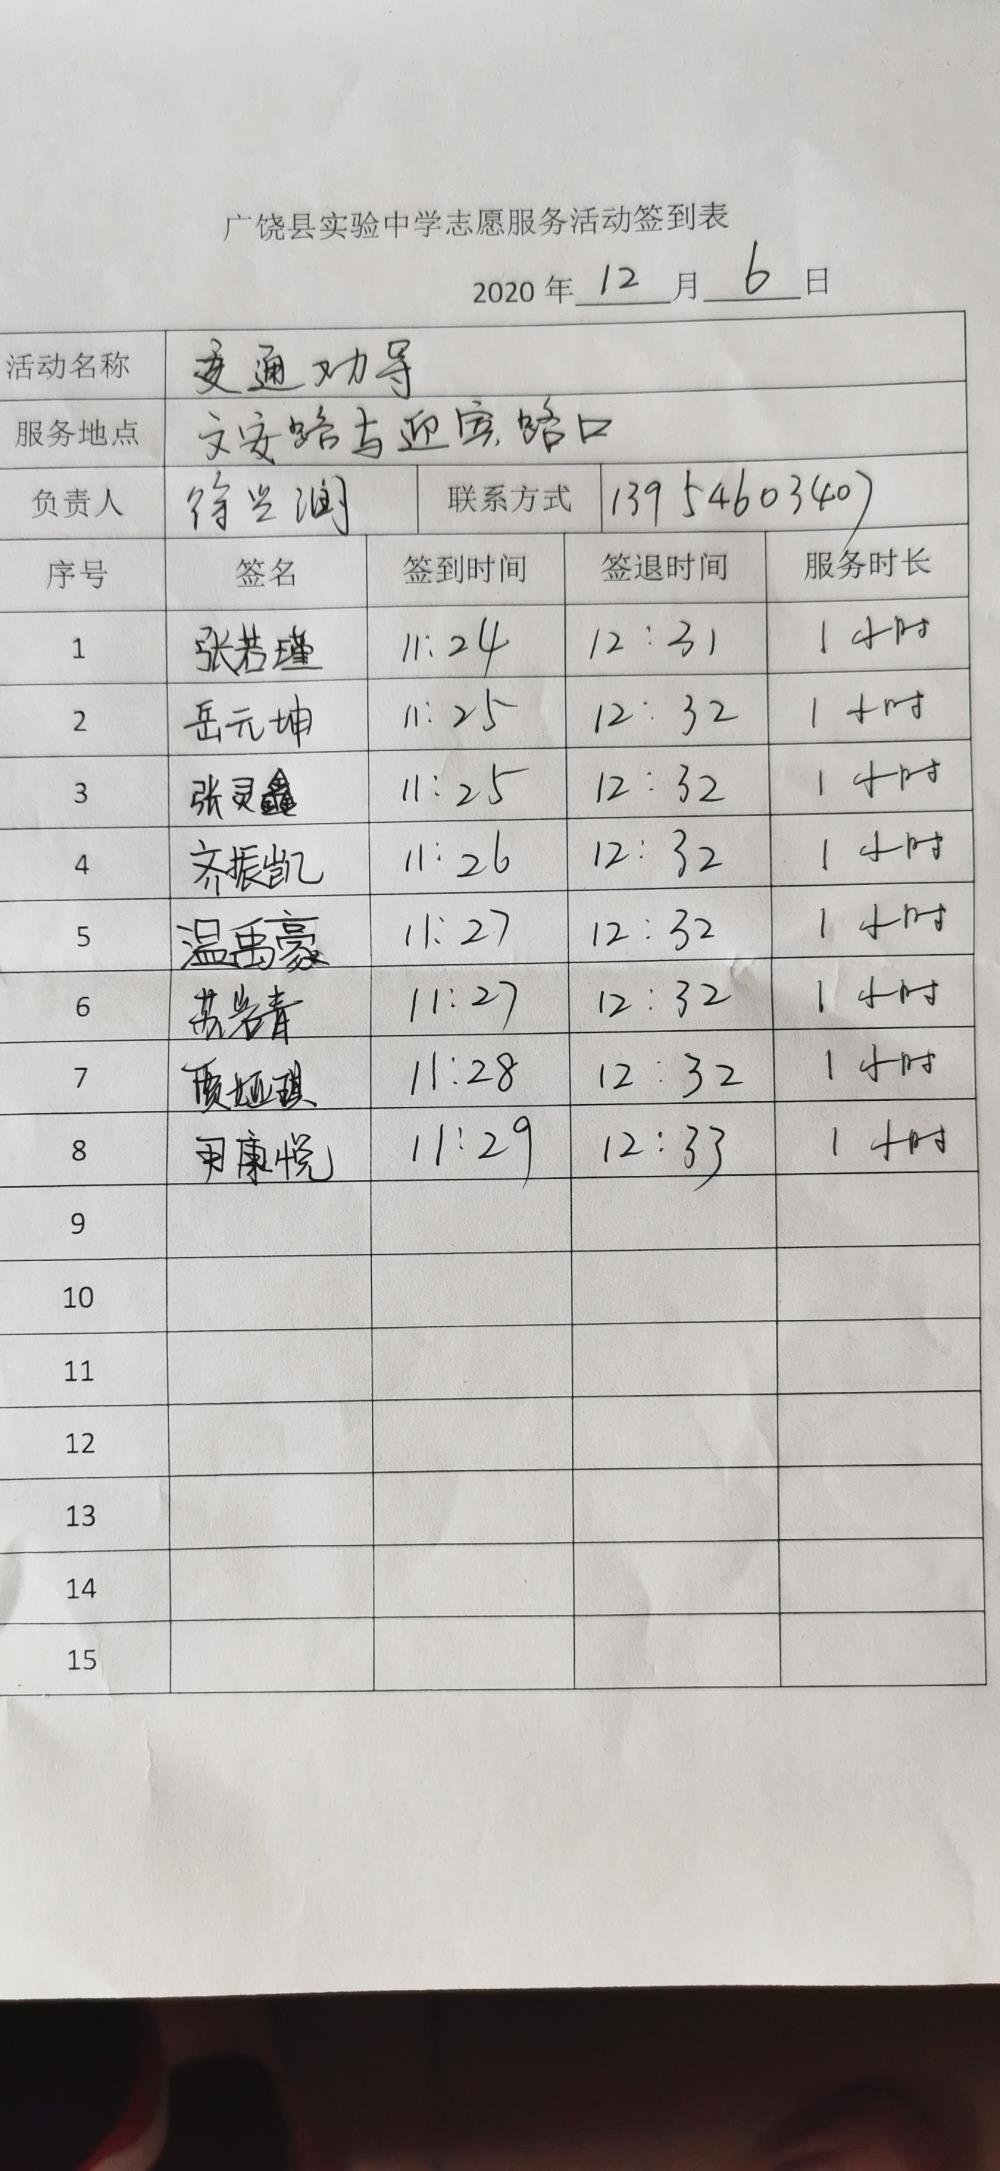 广饶县实验中学志愿服务活动签到表
2020 年 12 月 6 日
活动名称 交通劝导
服务地点 文安路与迎宾路口
负责人 徐兰润 联系方式 13954603407
序号 签名 签到时间 签退时间 服务时长
1 张若瑾 11:24 12:31 1小时
2 岳元坤 11:25 12:32 1小时
3 张灵鑫 11:25 12:32 1小时
4 齐振凯 11:26 12:32 1小时
5 温禹豪 11:27 12:32 1小时
6 苏岩青 11:27 12:32 1小时
7 11:28 12:32 1小时
8 尹康悦 11:29 12:33 1小时
9
10
11
12
13
14
15